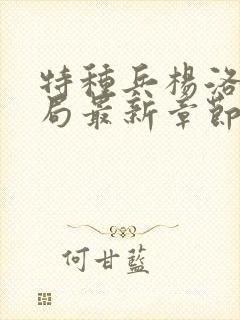 特種兵楊洛
局最新章節
何甘藍